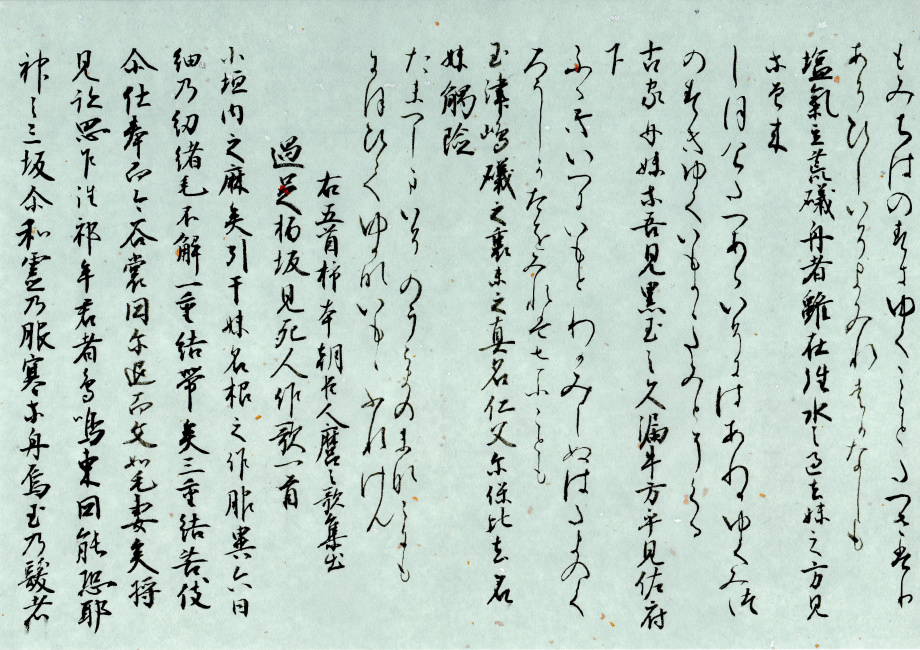 もみちはのすきゆくこらとたつさはり
あそひしいそまみれはかなしも
塩氣立荒礒丹者雖在徃水之過去妹之方見
等曽来
しほけたつあらいそにはあれとゆくみつ
のすきゆくいもかかたみとそくる
古家丹妹等吾見黒玉之久漏牛方乎見佐府
下
ふるいへにいもとわかみしぬはたまのく
ろうしかたをみれは
玉津嶋礒之裏未之真名仁文尓保比去名
妹觸險
たまつしまいそのうらまのまなこにも
にほひてゆかないもかふれけん
右五首柿本朝臣人麿之歌集出
過足柄坂見死人作歌一首
小垣内之麻矣引干妹名根之作服異六白
細乃紐緒毛不解一重結帶矣三重結苦伎
尓仕奉而今谷裳國尓退而父妣毛妻矣将
見跡思乍徃祁牟君者鳥鳴東國能恐耶
神之三坂尓和霊乃服寒等丹烏玉乃髪者